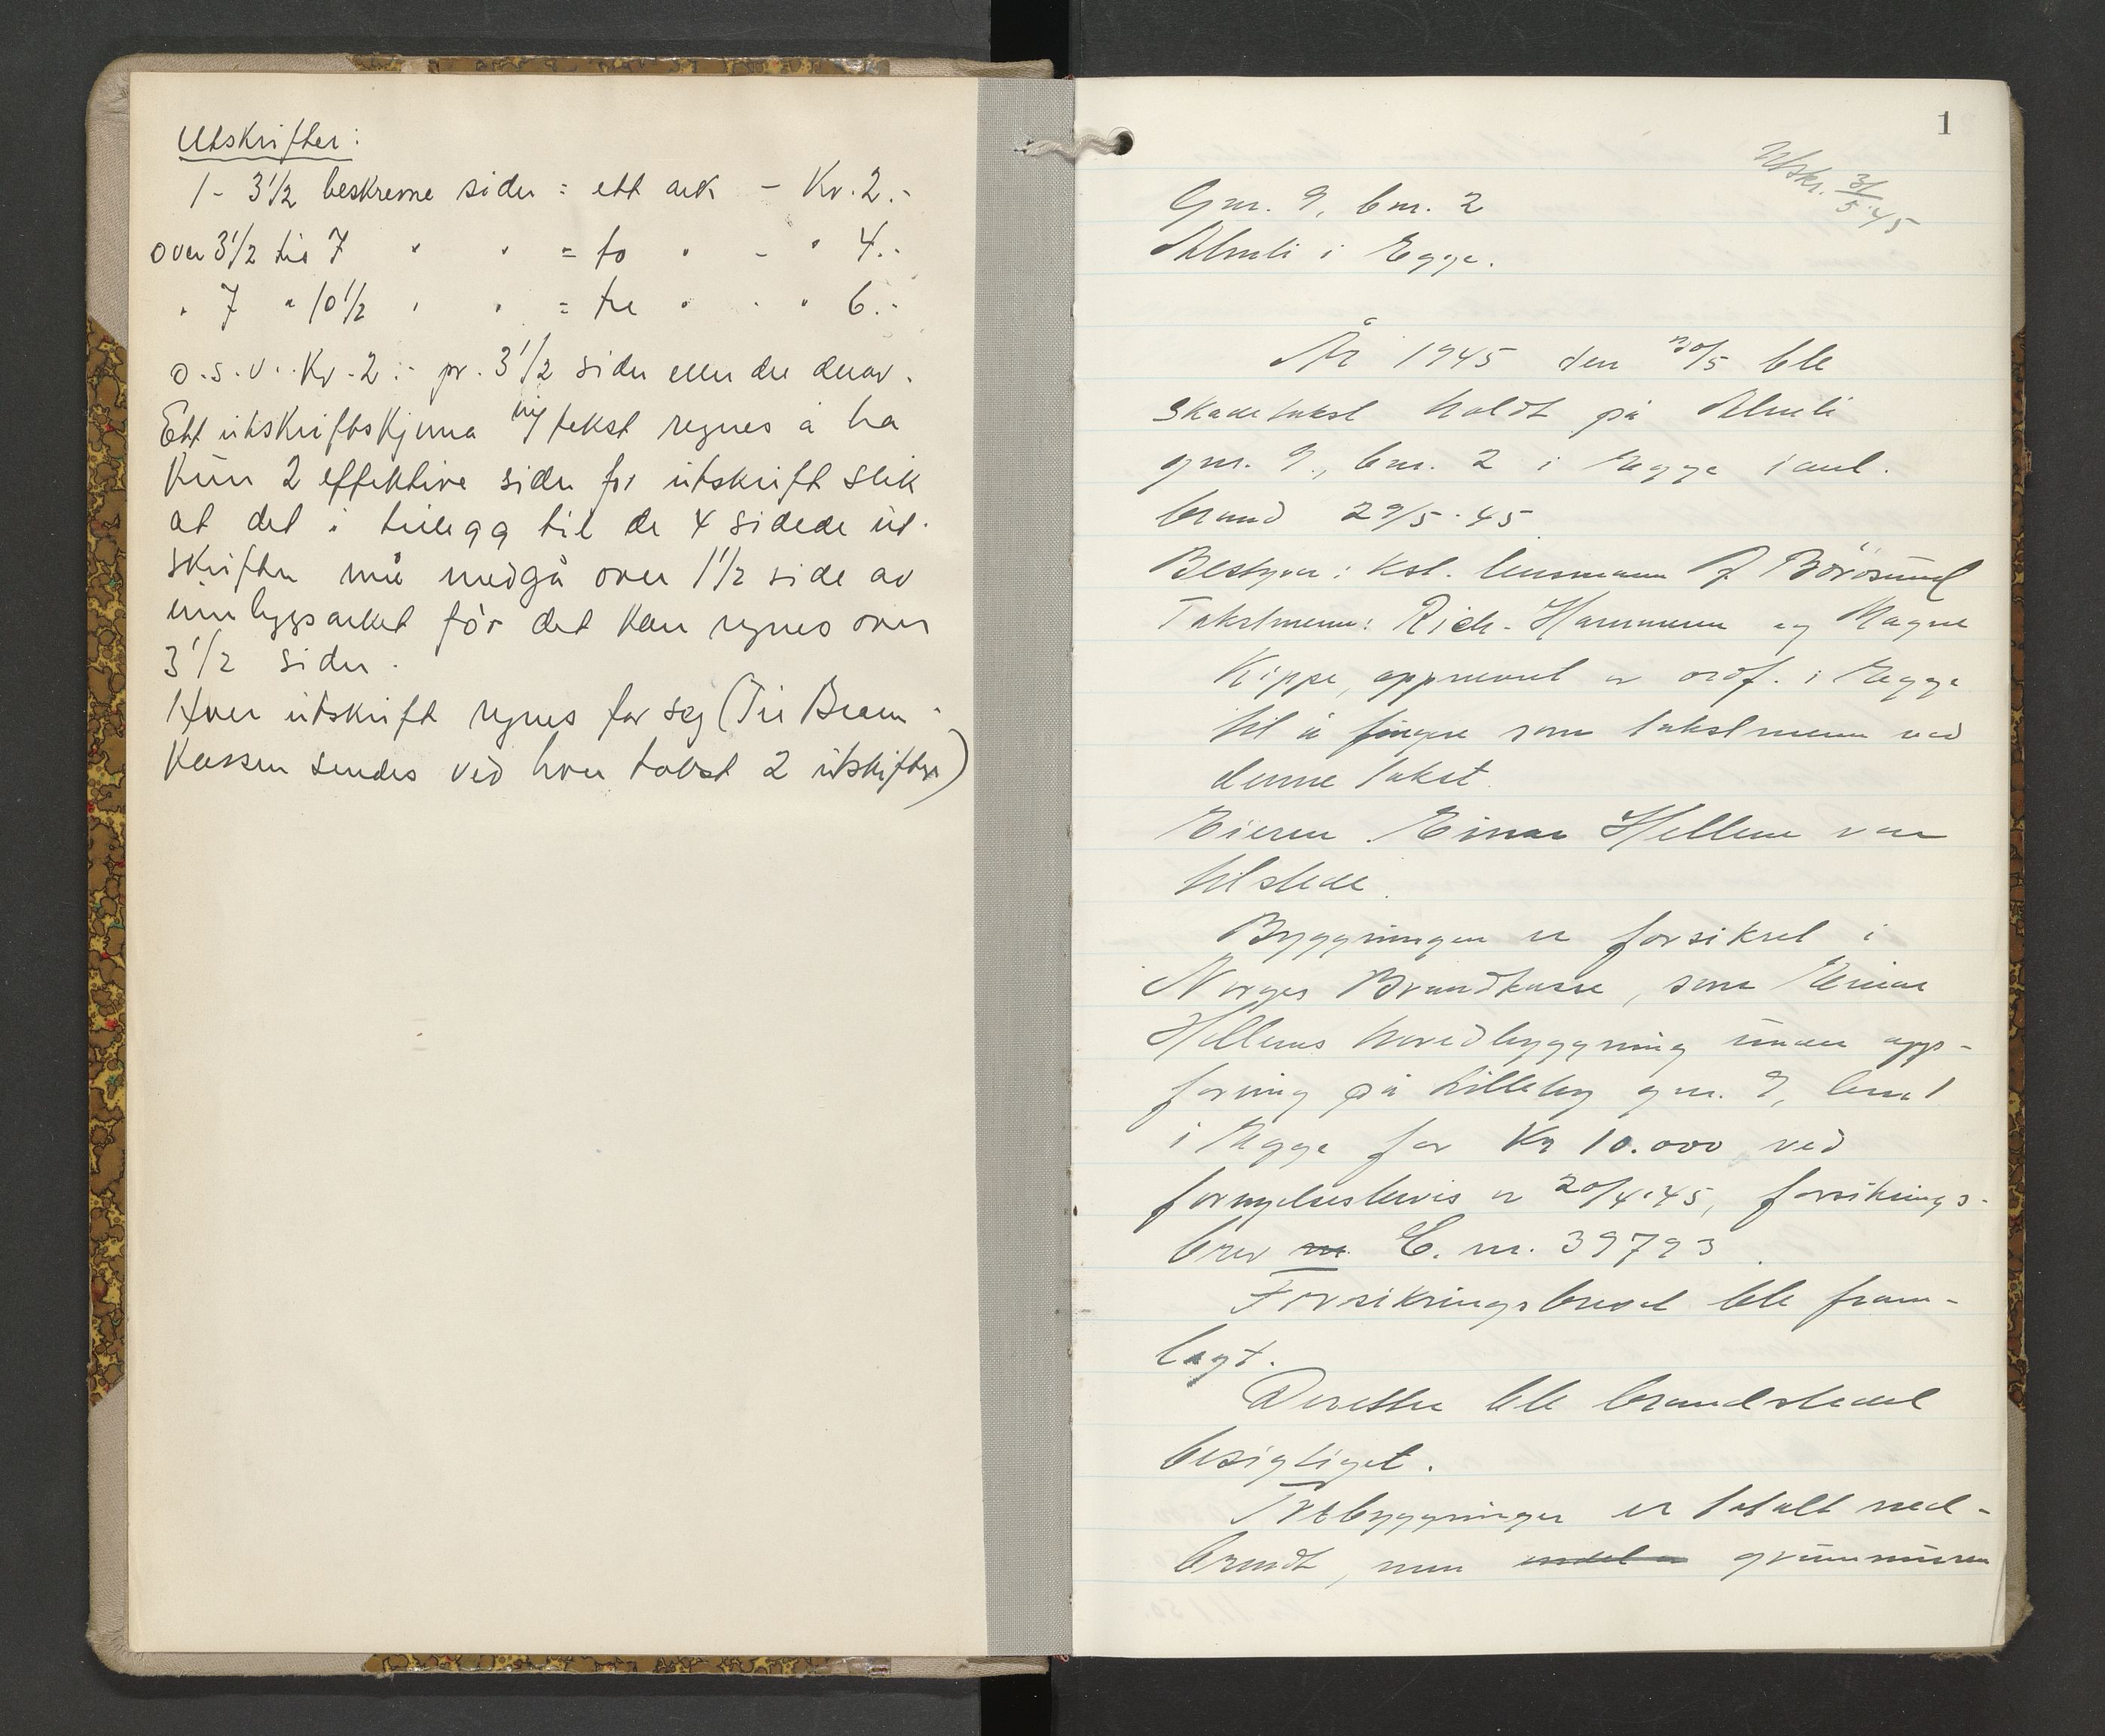 Utskrifter:
1 - 3 1/2 beskrevne sider = ett ark - Kr. 2.-
over 3 1/2 til 7 " " = to " - " 4.-
" 7 " 10 1/2 " " = tre " - " 6.-
o.s.v. Kr. 2.- pr. 3 1/2 sider eller del derav.
Ett utskriftskjema m/ tekst regnes å ha
kun 2 effektive sider for utskrift slik
at det i tillegg til de 4 sidede ut-
skrifter må medgå over 1 1/2 side av
innleggsarket før det kan regnes over
3 1/2 sider.
Hver utskrift regnes for seg (Til Brann-
kassen sendes ved hver takst 2 utskrifter)
1
Utskr. 31/5-45
Gnr. 9, bnr. 2
Almli i Egge.
År 1945 den 30/5 ble
skadetakst holdt på Almli
gnr. 9, bnr. 2 i Egge i anl.
brand 29/5-45
Bestyrer: kst. lensmann Børøsund
Takstmenn: Rich. Hammeren og Magne
Kippe, oppnevnt av ordf. i Egge
til å fungere som takstmenn ved
denne takst.
Eieren Einar Hellem var
tilstede.
Byggningen er forsikret i
Norges Brandkasse, som Einar
Hellems hovedbyggning under opp-
føring på Lilleby gnr. 9, bnr. 1
i Egge for Kr 10.000 ved
fornyelsesbevis av 20/4-45, forsikrings-
brev nr. C. nr. 39793.
Forsikringsbrevet ble fram-
lagt.
Deretter ble brandstedet
besigtiget.
Trebyggningen er totalt ned-
brendt, men grunnmuren